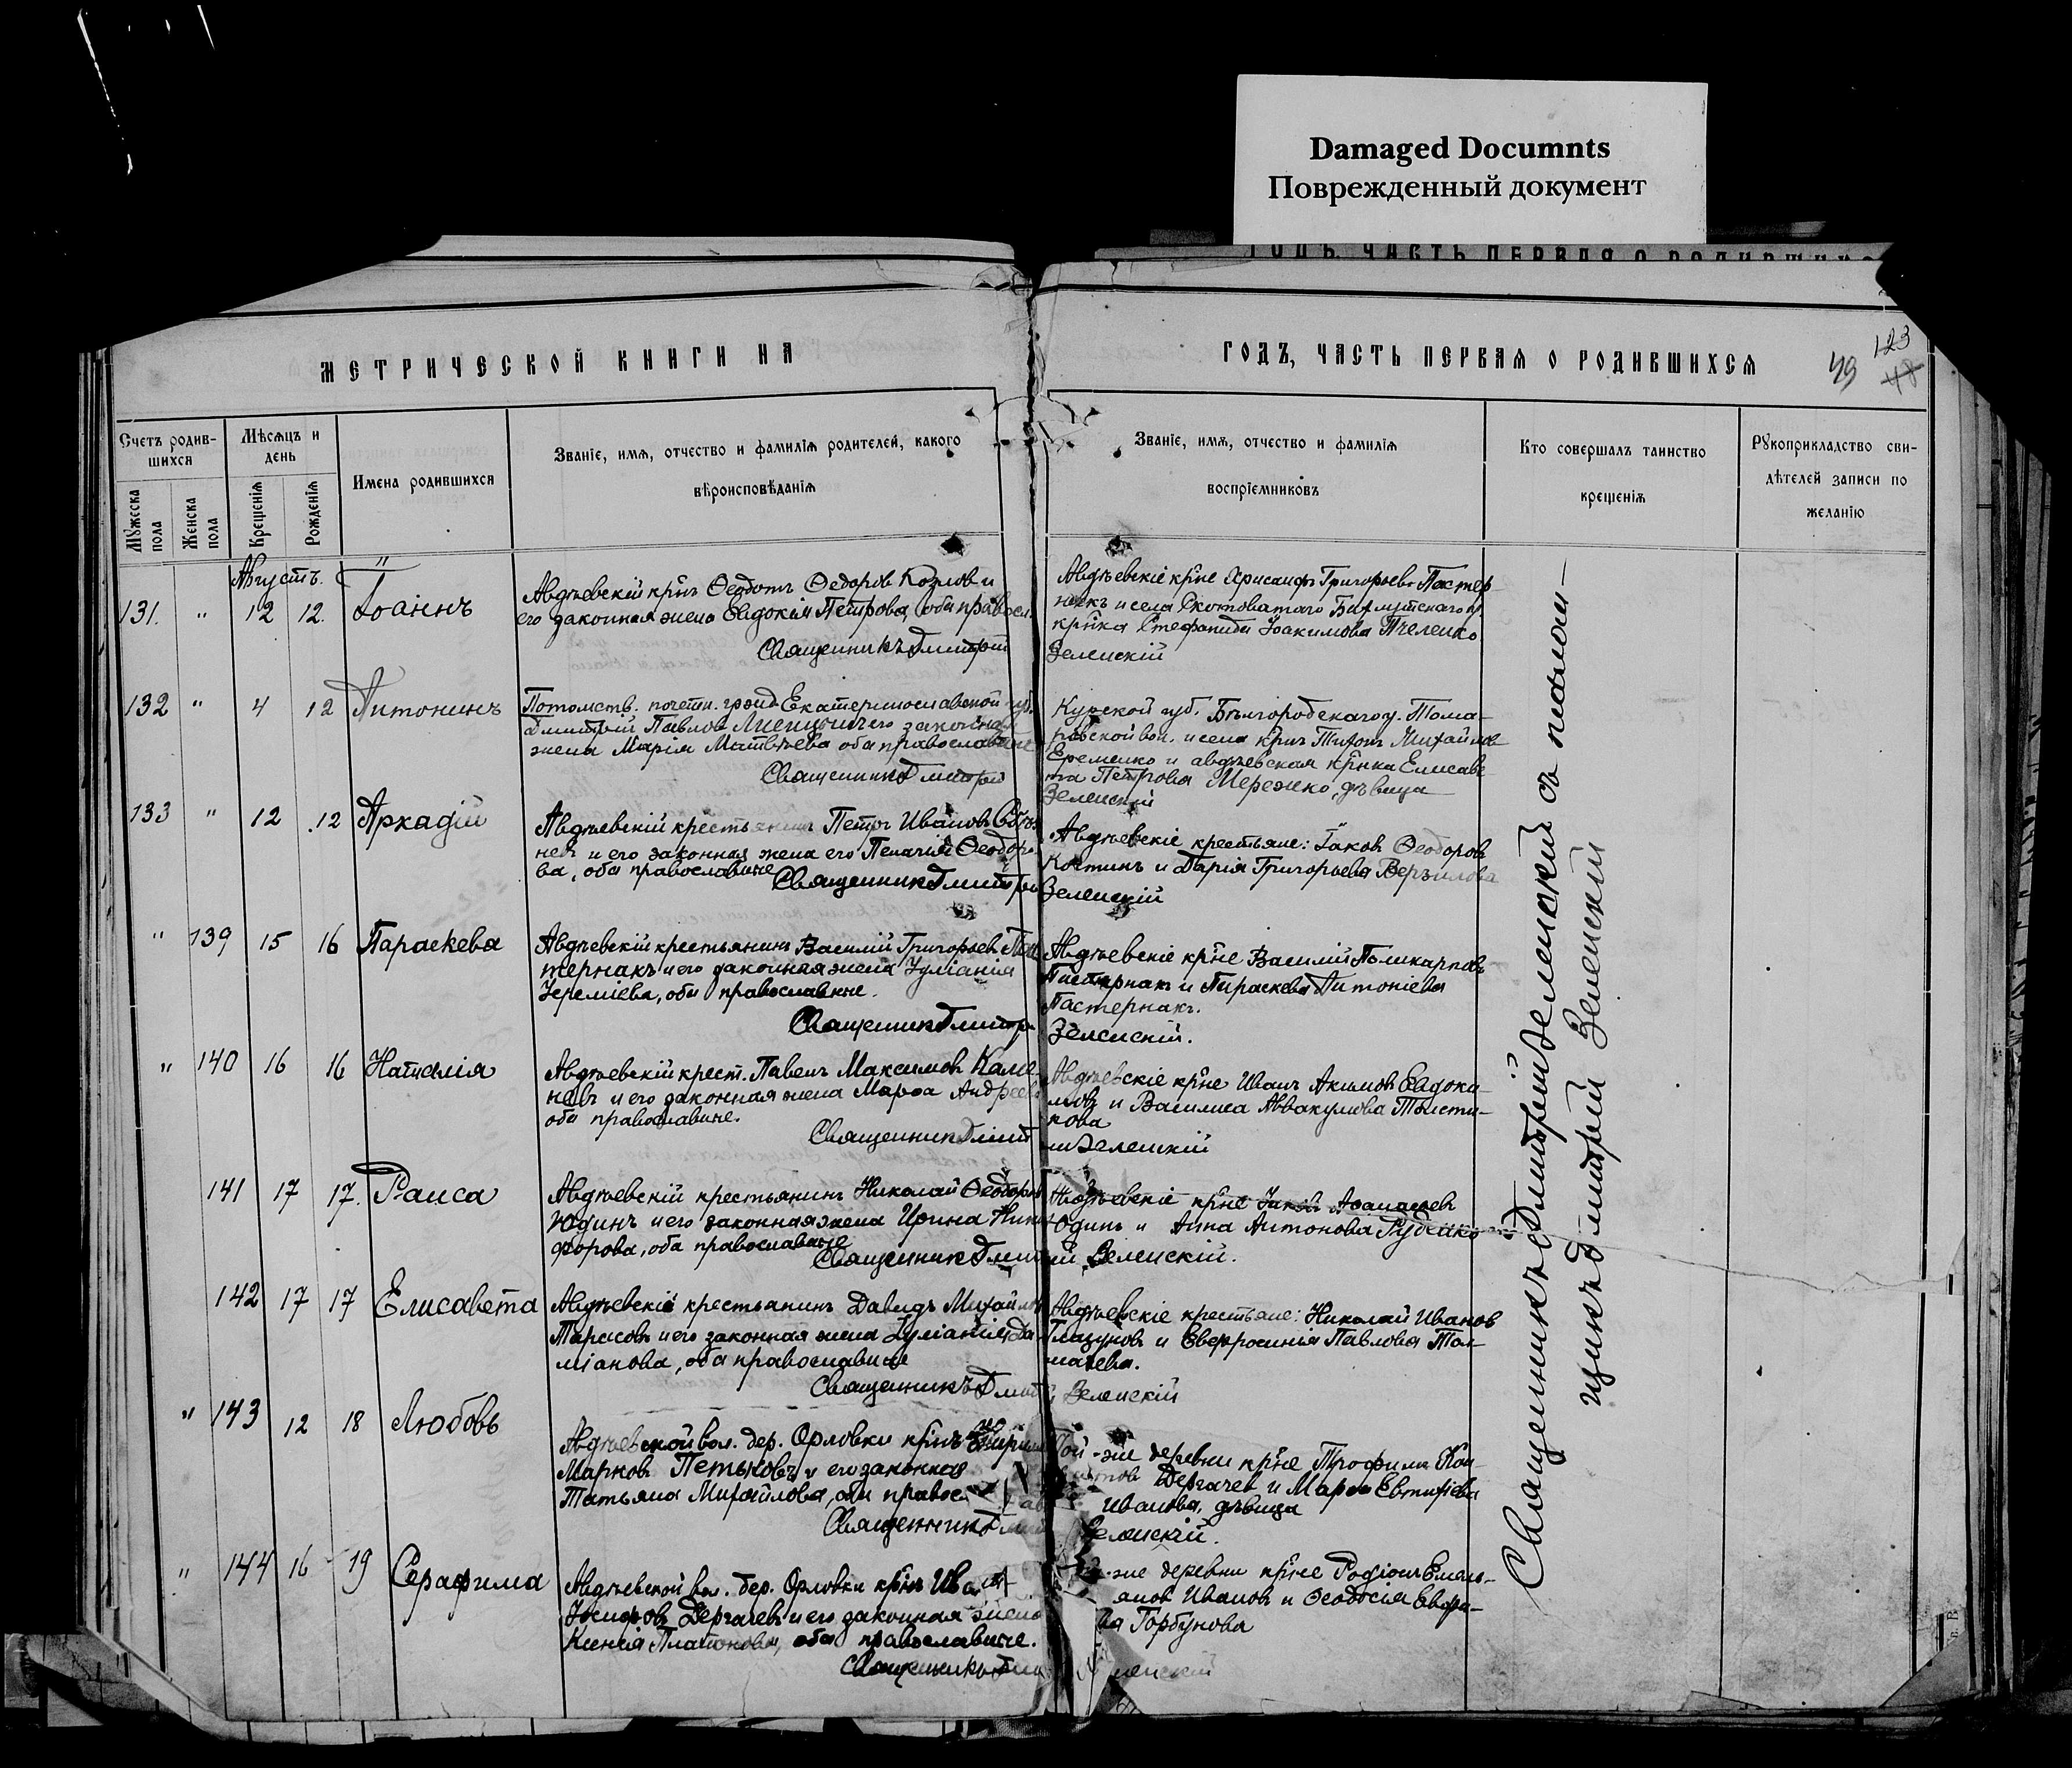 Damaged Documnts
Поврежденный документ
МЕТРИЧЕСКОЙ КНИГИ НА
ГОДЪ, ЧАСТЬ ПЕРВАЯ О РОДИВШИХСЯ
49 123
48
Счетъ родив-
шихся
Мужеска пола
Женска пола
Мѣсяцъ и
день
Крещенія
Рожденія
Имена родившихся
Званіе, имя, отчество и фамилія родителей, какого
вѣроисповѣданія
Званіе, имя, отчество и фамилія
воспріемниковъ
Кто совершалъ таинство
крещенія
Рукоприкладство сви-
дѣтелей записи по
желанію
Августъ.
131. " 12 12. Іоаннъ
Авдѣевскій крнъ Ѳеодотъ Ѳедоров Козлов и
его законная жена Евдокія Петрова, оба правосл.
Священникъ Дмитрій
Авдѣевскіе крне Хрисанфъ Григорьев Пастер
накъ и села Скотоватаго Бахмутскаго у
крнка Стефанида Іоакимова Пчеленко
Зеленскій
132 " 4 12 Антонинъ
Потомств. почетн. гражд. Екатеринославской губ.
Дмитрій Павлов его законная
жена Марія Матвѣева оба православные
Священникъ Дмитрій
Курской губ. Бѣлгородскаго у. Тома-
ровской вол. и села крнъ Титъ Михайлов
Еременко и авдѣевская крнка Елисаве
та Петрова Мережко, дѣвица
Зеленскій
133 " 12 12 Аркадій
Авдѣевскій крестьянинъ Петръ Иванов
нев и его законная жена его Пелагія Ѳеодоро
ва, оба православные
Священник Дмитрій
Авдѣевскіе крестьяне: Іаков Ѳеодоров
Костинъ и Дарія Григорьева Верзилова
Зеленскій
" 139 15 16 Параскева
Авдѣевскій крестьянинъ Василій Григорьев Пас
тернакъ и его законная жена Іуліанія
Іереміева, оба православные.
Священник Дмитрі
Авдѣевскіе крне Василій Поликарпов
Пастернак и Параскева Антоніева
Пастернакъ.
Зеленскій.
" 140 16 16 Наталія
Авдѣевскій крест. Павелъ Максимов Каме
невъ и его законная жена Марѳа Андреева
оба православные.
Священник Дмит
Авдѣевскіе крне Иванъ Акимов Евдоки-
мов и Василиса Аввакумова Толсти-
кова
Зеленскій
141 17 17. Раиса
Авдѣевскій крестьянинъ Николай Ѳеодоров
Юдинъ и его законная жена Ирина Ники
форова, оба православные
Священник Дмит
Авдѣевскіе крне Іаков Аѳанасьев
Юдинъ и Анна Антонова Рубенко
ій Зеленскій.
142 17 17 Елисавета
Авдѣевскій крестьянинъ Давидъ Михайлов
Тарасов и его законная жена Іуліанія Да
міанова, оба православные
Священникъ Дмит
Авдѣевскіе крестьяне: Николай Иванов
Глазунов и Евфросинія Павлова Тол-
мачева.
Зеленскій
" 143 12 18 Любовь
Авдѣевской вол. дер. Орловки крнъ
Марков Петьков и его законная
Татьяна Михайлова, оба правос
Священник Дми
Той-же деревни крне Трофимъ Кон-
Дергачев и Марѳа Евтихіева
Иванова, дѣвица
Зеленскій.
" 144 16 19 Серафима
Авдѣевской вол. дер. Орловки крнъ Иван
Іосифов Дергачев и его законная жена
Ксенія Платонова, оба православные.
Священникъ Дми
же деревни крне Родіонъ Емель-
янов Иванов и Ѳеодосія Евфи-
ва Горбунова
ленскій
Священникъ Дмитрій Зеленскій съ псаломщикъ
Дмитрій Зеленскій